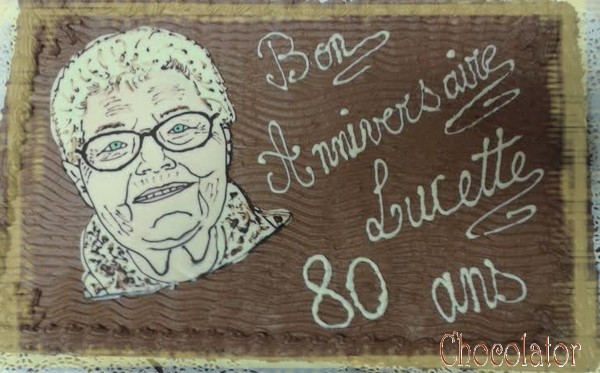 Bon
Anniversaire
Lucette
80 ans
Chocolator